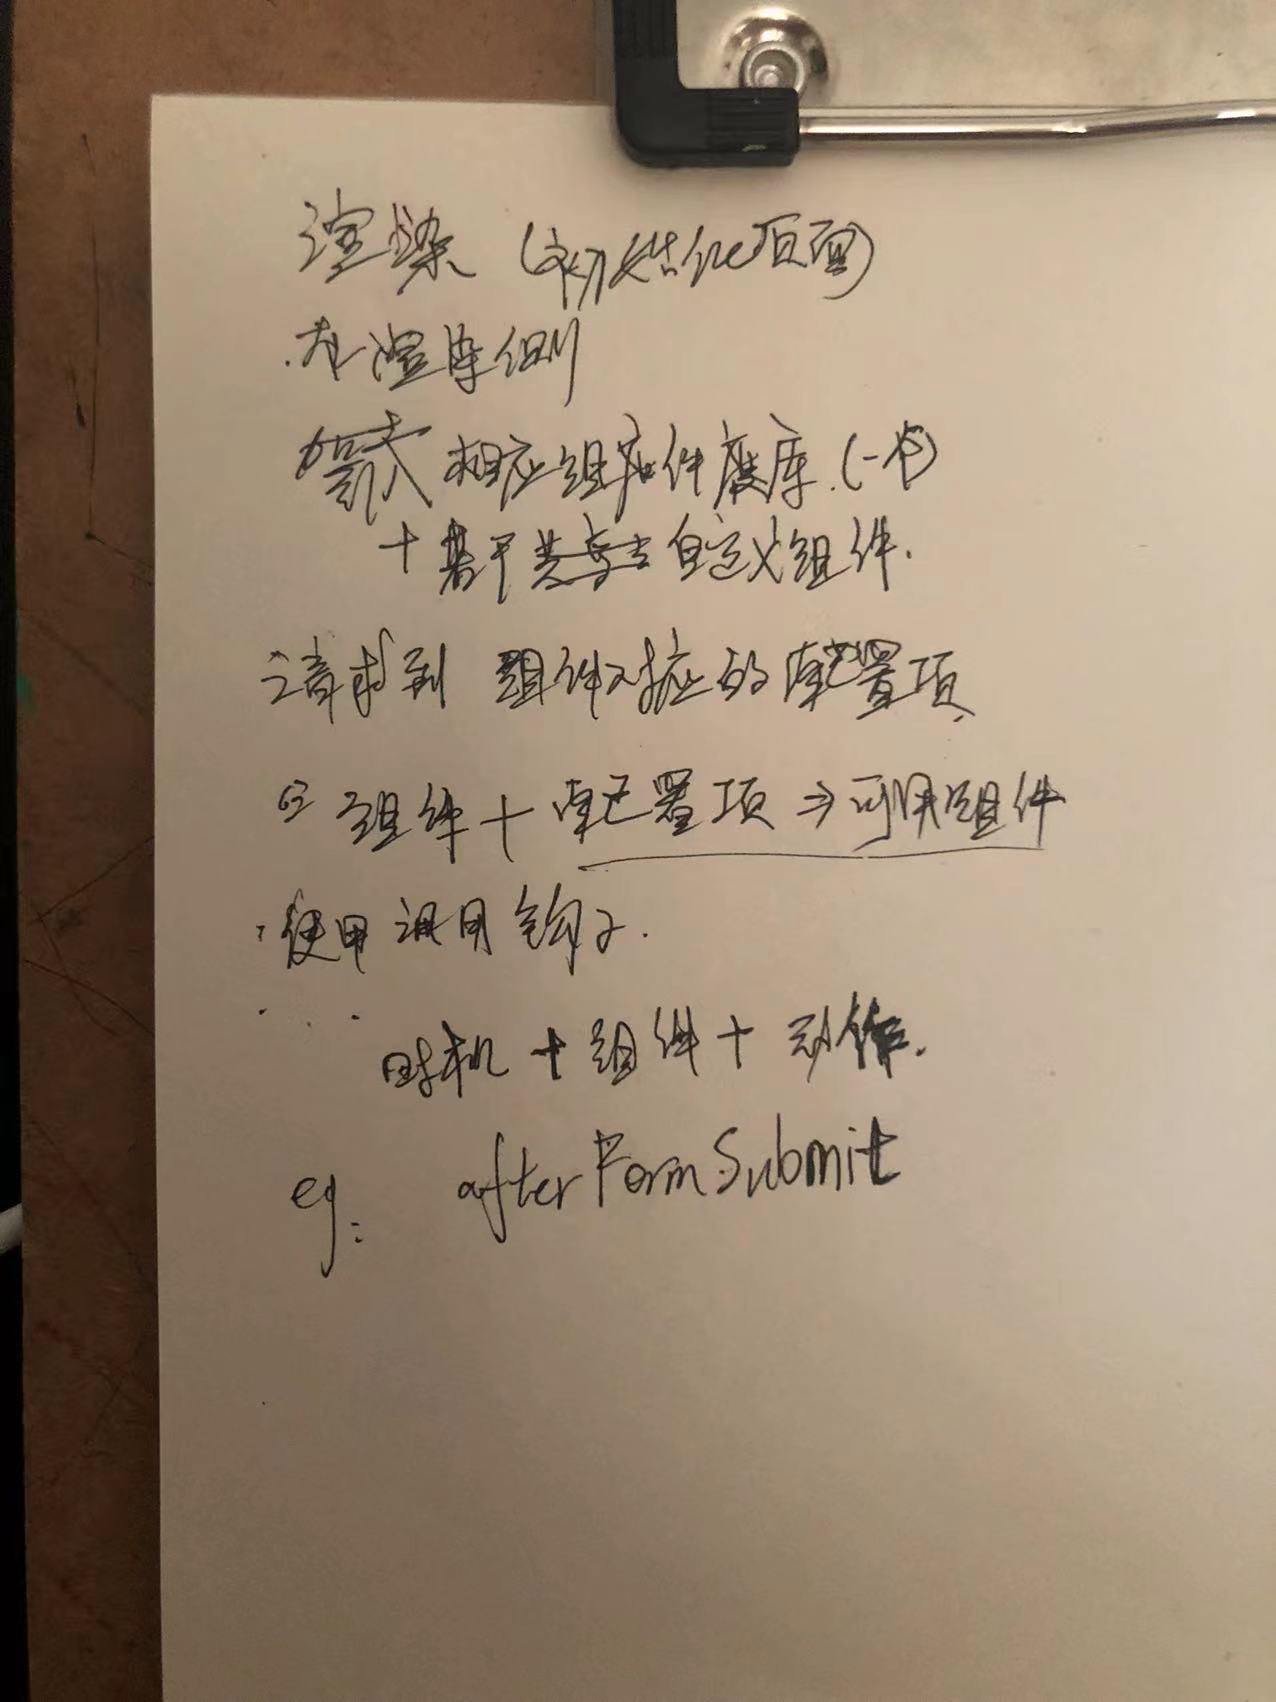 渲染 (初始化页面)
在渲染侧
相应组件库.(一次)
+ 若干 自定义组件.
请求到 组件对应的配置项
组件 + 配置项 => 可用组件
使用 调用 钩子.
. . .
时机 + 组件 + 动作.
eg: afterFormSubmit